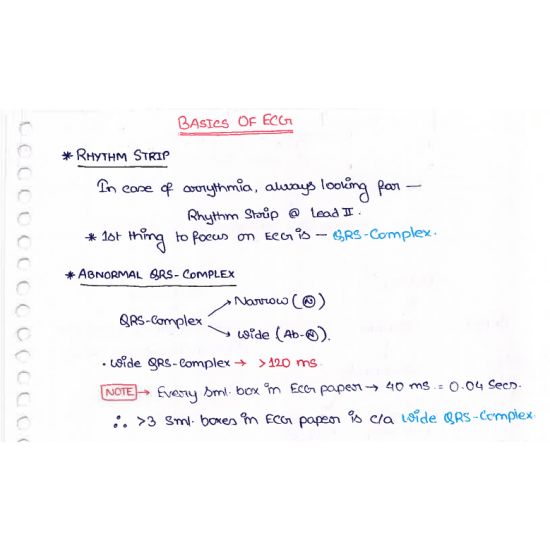 BASICS OF ECG
* RHYTHM STRIP
In case of arrythmia, always looking for —
Rhythm Strip @ Lead II.
* 1st thing to focus on ECG is — QRS-Complex.
* ABNORMAL QRS-COMPLEX
QRS-Complex
→ Narrow (Ⓝ)
→ Wide (Ab-Ⓝ).
• Wide QRS-Complex → >120 ms.
NOTE → Every sml. box in ECG paper → 40 ms. = 0.04 Secs.
∴ >3 sml. boxes in ECG paper is c/a Wide QRS-Complex.